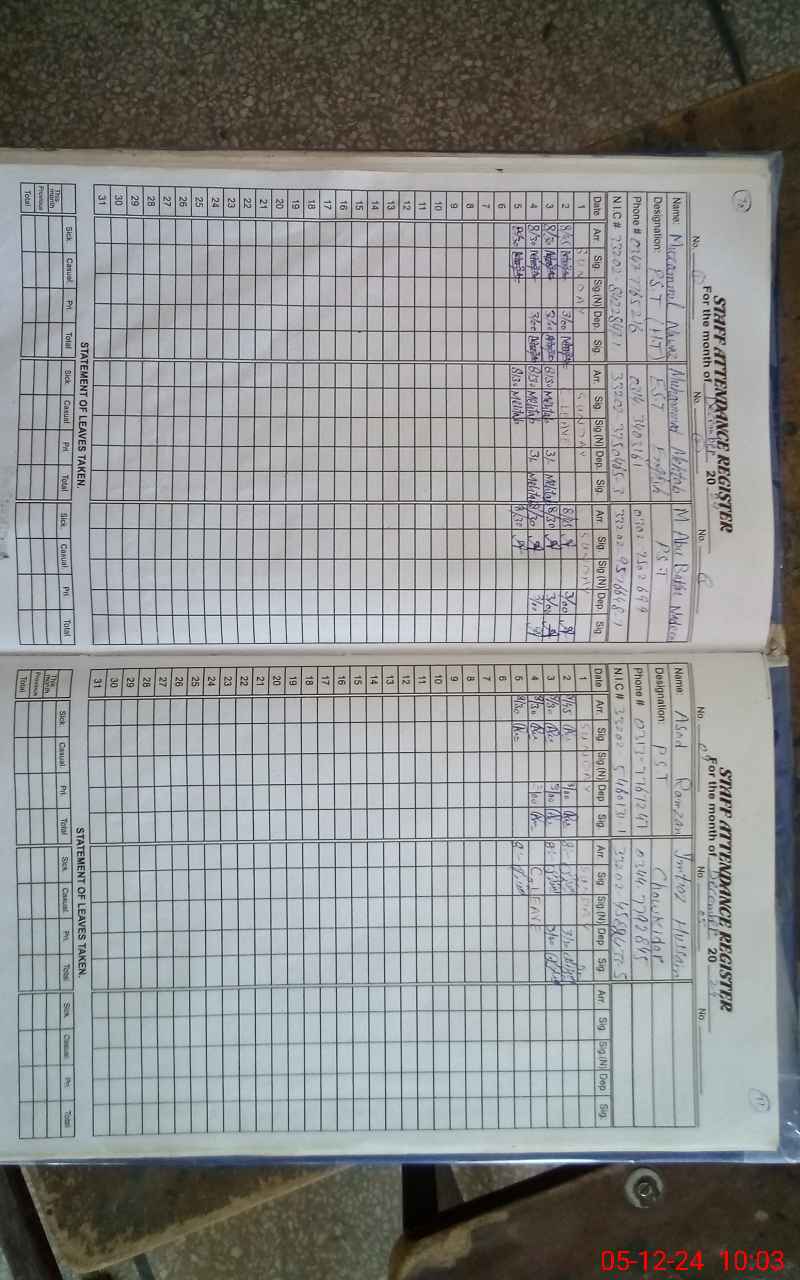 STAFF ATTENDANCE REGISTER
For the month of December 2024
No. No. No.
Name: Muzammal Nawaz Muhammad Mehtab M Abu Bakar Nadeem
Designation: PST (HT) EST English PST
Phone #
N.I.C #
Date Arr. Sig. Sig.(N) Dep. Sig. Arr. Sig. Sig.(N) Dep. Sig. Arr. Sig. Sig.(N) Dep. Sig.
1 SUNDAY SUNDAY SUNDAY
2 8/45 3/00 C.LEAVE 8/45 3/00
3 8/30 3/00 8/30 Mehtab 3/- Mehtab 8/30 3/00
4 8/30 3/00 8/30 Mehtab 3/- Mehtab 8/30 3/00
5 8/30 8/30 Mehtab 8/30
6
7
8
9
10
11
12
13
14
15
16
17
18
19
20
21
22
23
24
25
26
27
28
29
30
31
STATEMENT OF LEAVES TAKEN.
Sick Casual Pri. Total Sick Casual Pri. Total Sick Casual Pri. Total
This month
Previous
Total
STAFF ATTENDANCE REGISTER
For the month of December 2024
No. 04 No. 05 No.
Name: Asad Ramzan Imtiaz Hussain
Designation: PST Chowkidar
Phone # 0313-7767247 0344-7792845
N.I.C #
Date Arr. Sig. Sig.(N) Dep. Sig. Arr. Sig. Sig.(N) Dep. Sig. Arr. Sig. Sig.(N) Dep. Sig.
1 SUNDAY SUNDAY
2 8/45 3/00 8/- 3/00
3 8/30 3/00 8/- 3/00
4 8/30 3/00 C.LEAVE
5 8/30 8/-
6
7
8
9
10
11
12
13
14
15
16
17
18
19
20
21
22
23
24
25
26
27
28
29
30
31
STATEMENT OF LEAVES TAKEN.
Sick Casual Pri. Total Sick Casual Pri. Total Sick Casual Pri. Total
This month
Previous
Total
05-12-24 10:03